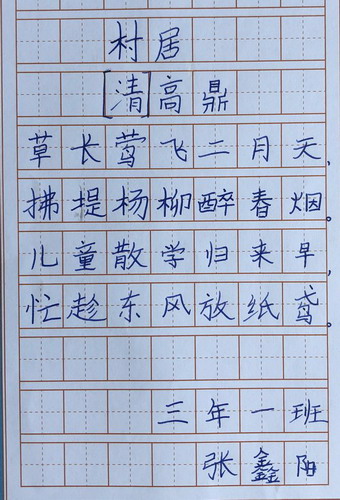 村居
[清]高鼎
草长莺飞二月天,
拂堤杨柳醉春烟。
儿童散学归来早,
忙趁东风放纸鸢。
三年一班
张鑫阳